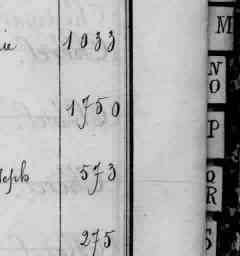 ie 1033
1750
seph 573
275
M
N
O
P
Q
R
S